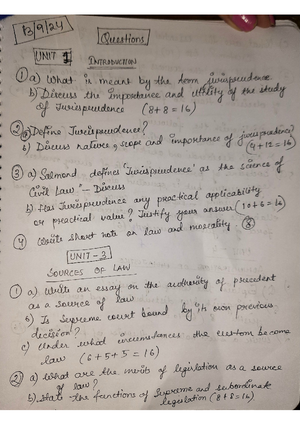 13/9/24
Questions
UNIT 1
INTRODUCTION
① a) What is meant by the term jurisprudence.
b) Discuss the importance and utility of the study
of Jurisprudence (8+8=16)
② a) Define Jurisprudence?
b) Discuss nature, scope and importance of jurisprudence?
(4+12=16)
③ a) Salmond defines 'Jurisprudence' as the science of
Civil Law" - Discuss
b) Has Jurisprudence any practical applicability
or practical value? Justify your answer (10+6=16)
④ Write short note on law and morality ⑧
UNIT-3
SOURCES OF LAW
① a) Write an essay on the authority of precedent
as a source of law
b) Is Supreme court bound by its own previous
decision?
c) Under what circumstances the custom become
law (6+5+5=16)
② a) What are the merits of legislation as a source
of law?
b) State the functions of Supreme and subordinate
legislation (8+8=16)